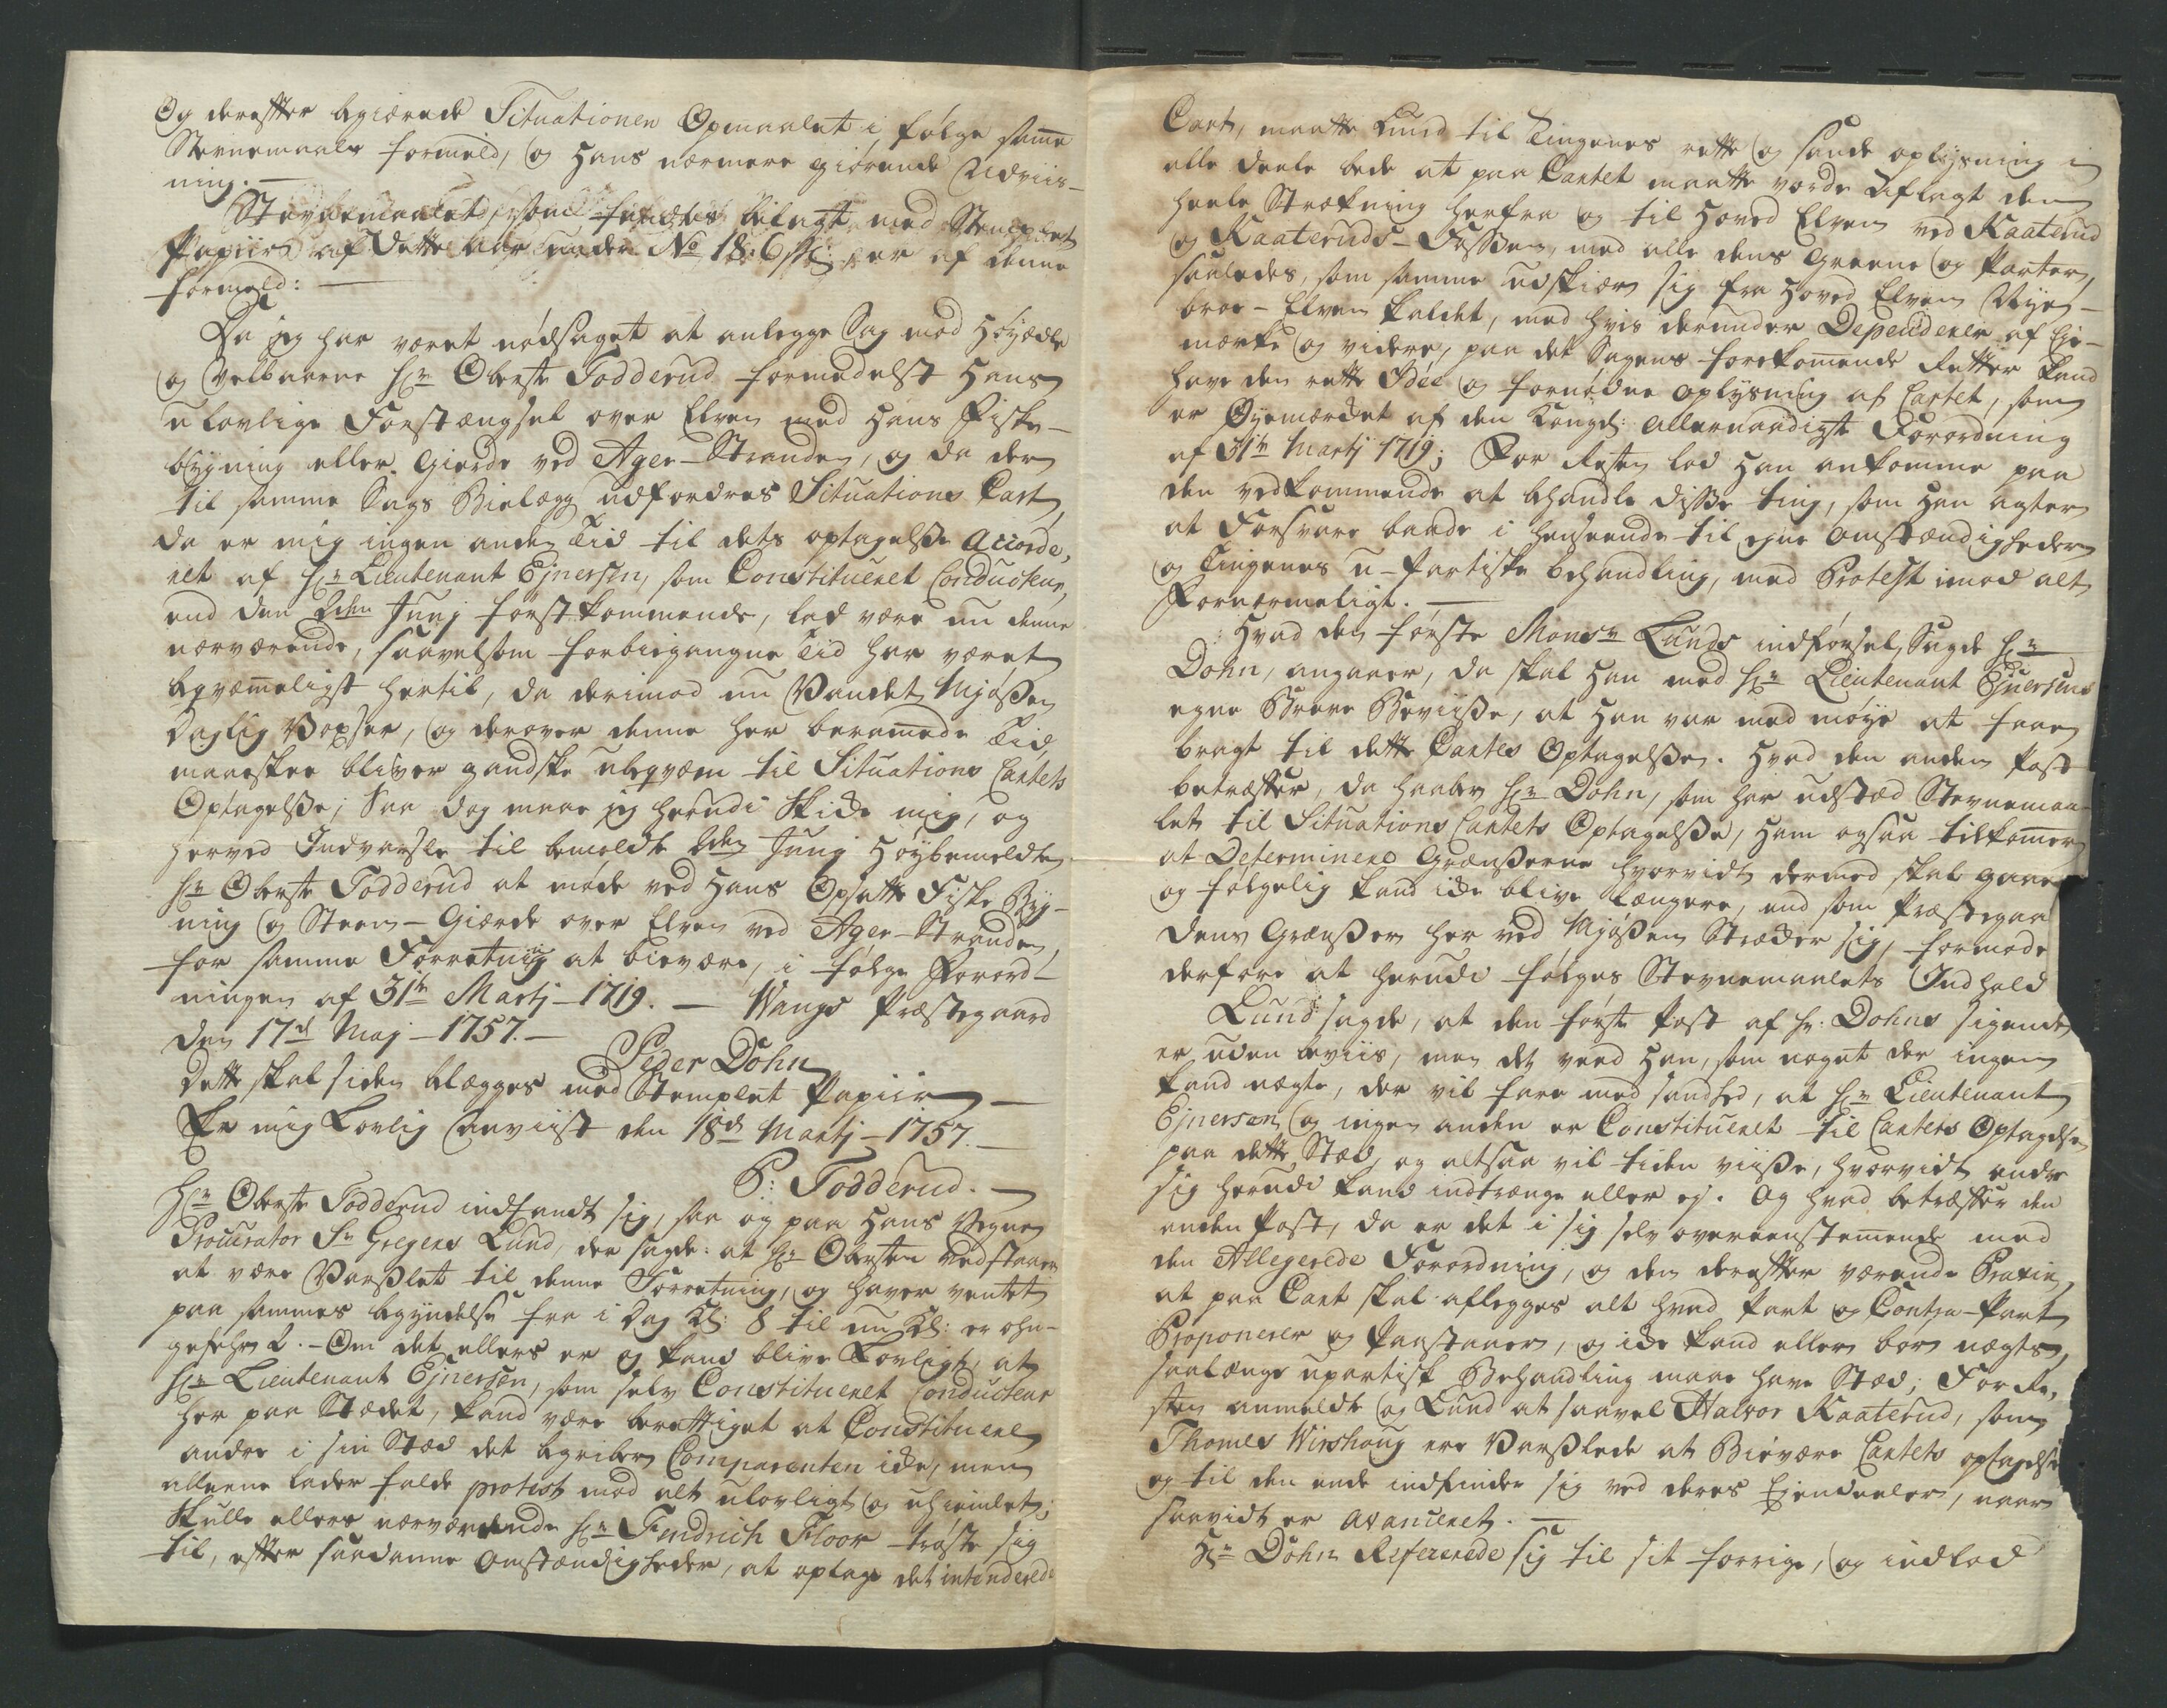 Og derefter begiærede Situationen Opmaalet i følge samme
Stevnemaals formeld, og Hans nærmere giørende Udviis-
ning. —
Stevnemaalet, som fandtes bilagt med Stemplet
Papiir af dette aar under No 18: 6 s: er af denne
formeld: —
Da jeg har været nødsaget at anlegge Sag mod Høyædle
og Velbaarne Hr Oberste Todderud formedelst Hans
ulovlige Forstængsel over Elven med Hans Fiske-
bygning eller Gierde ved Ager-Stranden, og da der
til samme Sags Bielægg udfordres Situations Cart,
da er mig ingen anden Tid til dets optagelse accorde-
ret af Hr Lieutenant Ejnersen, som Constitueret Conducteur,
end den 2den Junj førstkommende, lad være nu denne
nærværende, saavelsom forbigangne Tid har været
beqvæmeligst hertil, da derimod nu Vandet Mjøsen
daglig Voxser, og derover denne her beramede Tid
maaskee bliver gandske ubeqvæm til Situations Cartets
Optagelse; Saa dog maae jeg herudi skikke mig, og
herved Indvarsle til bemeldte 2den Junj Høybemeldte
Hr Oberste Todderud at møde ved Hans Opsatte Fiske Byg-
ning og Steen-Giærde over Elven ved Ager-Stranden,
for samme Forretning at bievære, i følge Forord-
ningen af 31te Martj 1719. — Wangs Præstegaard
den 17d Maj 1757. —
Peder Dohn
Dette skal siden belægges med Stemplet Papiir —
Er mig Lovlig anviist den 18d Martj 1757. —
P: Todderud. —
Hr Oberste Todderud indfandt sig, saa og paa Hans Vegne
Procurator Sr Gregers Lund, der sagde: at Hr Obersten vedstaaer
at være Varslet til denne Forretning, og haver ventet
paa sammes begyndelse fra i Dag Kl: 8 til nu Kl: er ohn-
gefehr 2. - Om det ellers er og kand blive Lovligt, at
Hr Lieutenant Ejnersen, som selv Constitueret Conducteur
her paa Stædet, kand være berettiget at Constituere
andre i sin Stæd det begriber Comparenten ikke, men
alleene lader falde protest mod alt ulovligt og uhiemlet;
Skulle ellers nærværende Hr Fendrich Floor trøste sig
til, efter saadanne Omstændigheder, at optage det intenderede
Cart, maatte Lund til Tingenes rette og sande oplysning i
alle Deele bede at paa Cartet maatte vorde aflagt den
heele Strækning herfra og til Hoved Elven ved Kaaterud
og Kaateruds-Fossen, med alle dens Greene og Parter,
saaledes, som samme udskiær sig fra Hoved Elven Nye-
broe-Elven kaldet, med hvis derunder Dependerer af Eje-
mærke og videre, paa det Sagens forekomende Retter kand
have den rette Idée og fornødne oplysning af Cartet, som
er Øyemærket af den Kongel: allernaadigste Forordning
af 31te Martj 1719; For Resten lod Han ankomme paa
den vedkommende at behandle disse ting, som Han agter
at Forsvare baade i henseende til egne Omstændigheder
og Tingenes u-partiske behandling, med Protest imod alt
Fornærmeligt. —
Hvad den første Monsr Lunds indførsel, Sagde Hr
Dohn, angaaer, da skal Han med Hr Lieutenant Ejnersens
egne Breve Beviise, at Han var med møye at faae
bragt til dette Cartes Optagelse. Hvad den anden Post
betræffer, da haaber Hr Dohn, som har udstæd Stevnemaa-
let til Situations Cartets Optagelse, Ham ogsaa tilkommer
at Determinere Grændserne hvorvidt dermed skal gaaes
og følgelig kand ikke blive længere, end som Præstegaar
dens Grændser her ved Mjøsen Strækker sig, formode
derfore at herudi følges Stevnemaalets Indhold
Lund sagde, at den første Post af Hr. Dohns sigende,
er uden beviis, men det veed Han, som noget der ingen
kand nægte, der vil fare med sandhed, at Hr Lieutenant
Ejnersen og ingen anden er Constitueret til Cartets Optagelse
paa dette Stæd, og altsaa vil tiden viise, hvorvidt andre
sig herudi kand indtrænge eller ej. Og hvad betræffer den
anden Post, da er det i sig selv overeenstemende med
den Allegerede Forordning, og den derefter værende Praxin,
at paa Cart skal aflegges alt hvad Part og Contra-Part
Proponerer og Paastaaer, og ikke kand eller bør nægtes,
saalænge upartisk Behandling maae have Stæd; For Re-
sten anmeldte og Lund at saavel Halvor Kaaterud, som
Thomes Wirshoug ere Varslede at Bievære Cartets optagelse
og til den ende indfinder sig ved deres Ejendeeler, naar
saavidt er avanceret. —
Hr Dohn Refererede sig til sit forrige, og indlod